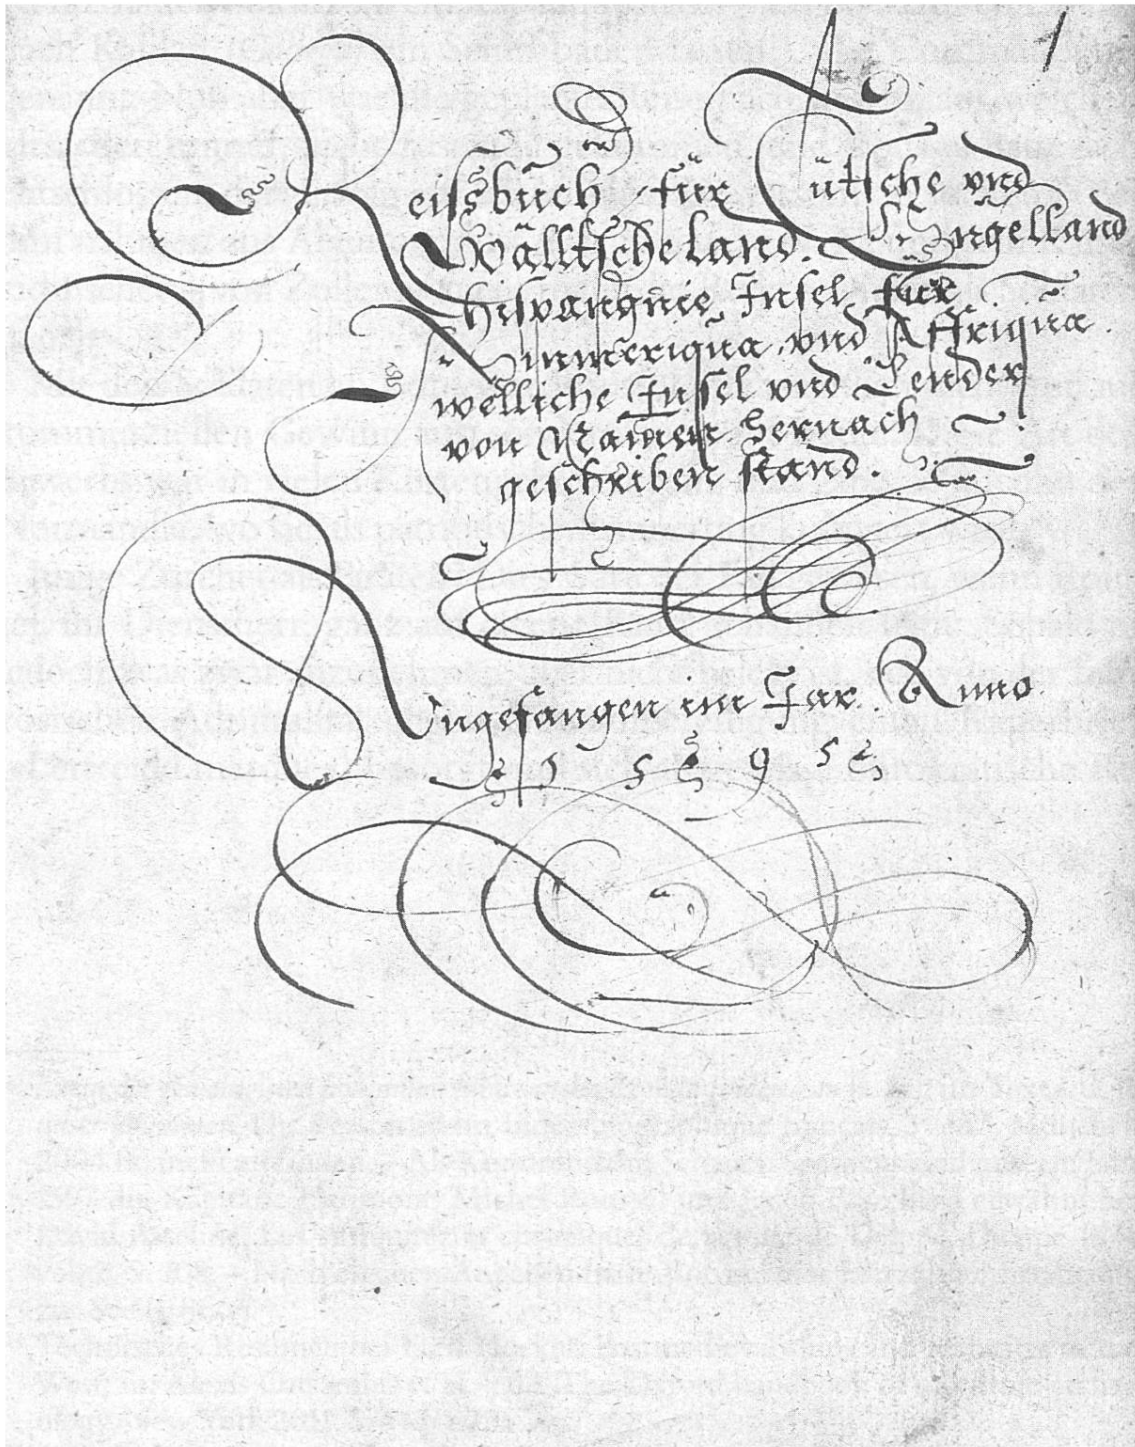 1
Reissbuch für Tütsche und
Wälltsche land. Engelland
Hispangnie Insel für
Ammeriqua und Affriqua.
welliche Insel und Lender
von Namen hernach
geschriben stand.
Angefangen im Jar. Anno.
1 5 9 5